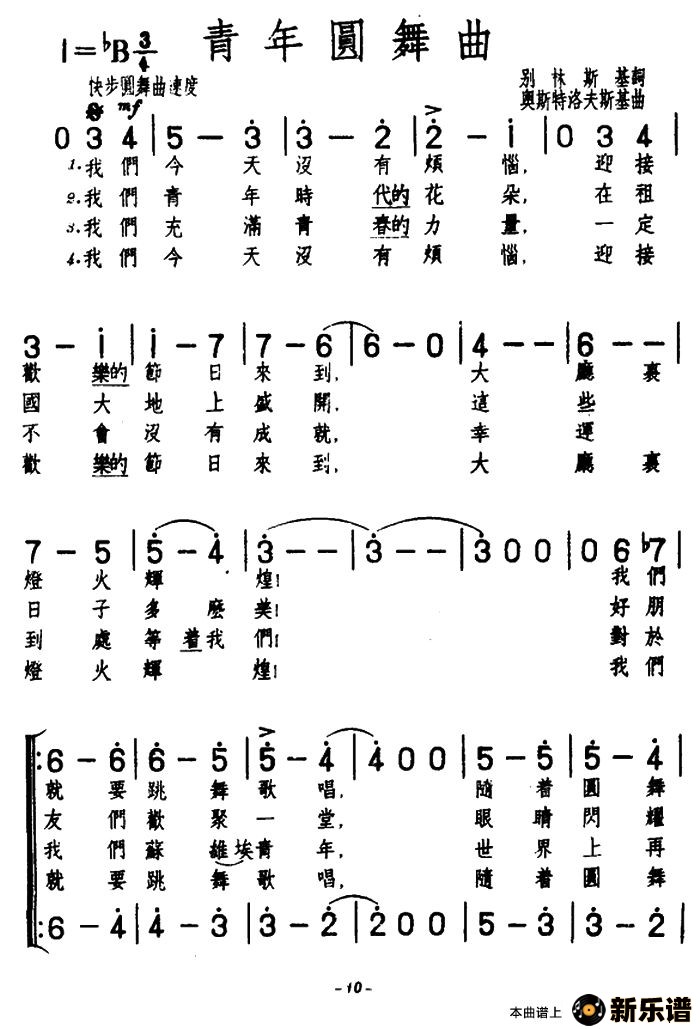 青年圓舞曲
1=♭B 3/4
快步圓舞曲速度
别怵斯基詞
奥斯特洛夫斯基曲
mf
0 3 4 | 5 - 3̇ | 3̇ - 2̇ | 2̇ - 1̇ | 0 3 4 |
1.我們今天沒有煩惱，迎接
2.我們青年時代的花朵，在祖
3.我們充滿青春的力量，一定
4.我們今天沒有煩惱，迎接
3 - 1̇ | 1̇ - 7 | 7 - 6 | 6 - 0 | 4 - - | 6 - - |
歡樂的節日來到，大廳裏
國大地上盛開，這些
不會沒有成就，幸運
歡樂的節日來到，大廳裏
7 - 5 | 5̇ - 4̇ | 3̇ - - | 3̇ - - | 3̇ 0 0 | 0 6 ♭7 |
燈火輝煌！我們
日子多麽美！好朋
到處等着我們！對於
燈火輝煌！我們
6 - 6̇ | 6̇ - 5̇ | 5̇ - 4̇ | 4̇ 0 0 | 5 - 5̇ | 5̇ - 4̇ |
就要跳舞歌唱，隨着圓舞
友們歡聚一堂，眼睛閃耀
我們蘇維埃青年，世界上再
就要跳舞歌唱，隨着圓舞
6 - 4̇ | 4̇ - 3̇ | 3̇ - 2̇ | 2̇ 0 0 | 5 - 3̇ | 3̇ - 2̇ |
-10-
本曲谱上 新乐谱